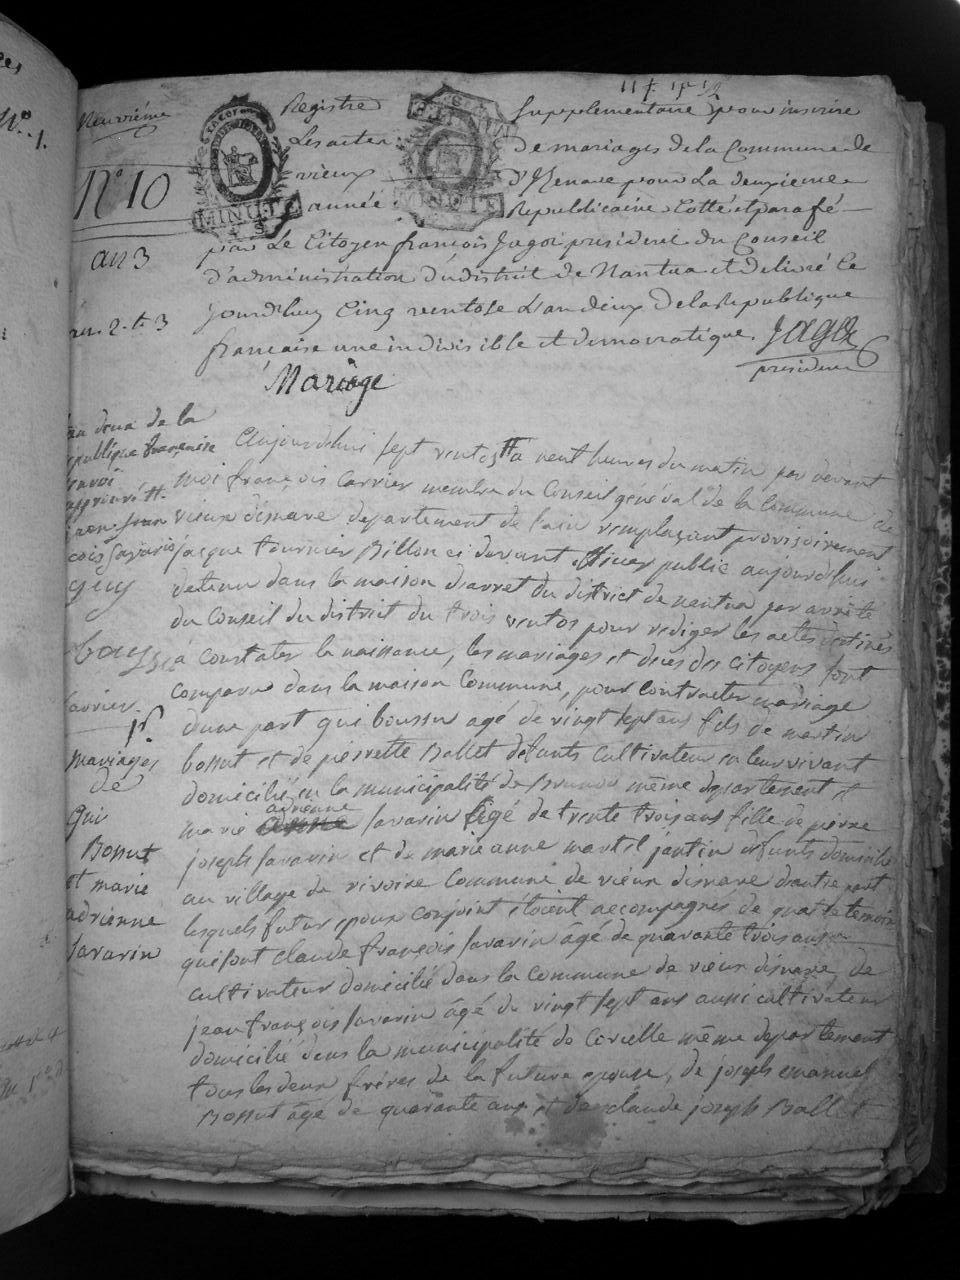 Neuvriéme
N° 10
an 3
Registre Supplementaire pour inscrire
Les actes de mariages de la Commune de
vieux d'Henave pour La deuxieme
année Republicaine Cotté et parafé
par Le Citoyen francois Jagot president du Conseil
d'administration du district de Nantua et delivré Ce
Jourd'huy Cinq ventose L'an deux de la Republique
francaise une indivisible et democratique. Jagot
president
MINUTE
Mariage
an deux de la
republique francaise
renvoi
approuvé
Aujourdhui sept ventose a neuf heures du matin par devant
moi françois Carrier membre du Conseil général de la Commune de
vieux disnave departement de l'ain remplaçant provisoirement
jacque tournier Billon ci devant officier public aujourdhui
detenu dans la maison darret du district de nantua par arrêté
du Conseil du district du trois ventos pour rediger les actes destinés
a constater la naissance, les mariages et deces des citoyens sont
comparu dans la maison Commune, pour contracter mariage
dune part gui boussu agé de vingt sept ans fils de martin
bossut et de pierrette Ballet defunts cultivateur en leur vivant
domicilié en la municipalité de même departement et
marie adrienne Savarin âgé de trente trois ans fille de pierre
joseph Savarin et de marie anne martel jantin defunts domicilié
au village de rivoire Commune de vieux disnave dautre part
lesquels futur epoux conjoint étoient accompagnés de quatre temoin
qui sont claude françois Savarin âgé de quarante trois ans
cultivateur domicilié dans la Commune de vieux disnave, de
jean françois Savarin âgé de vingt sept ans aussi cultivateur
domicilié dans la municipalité de Corcelle même departement
tous les deux frères de la future epouse, de joseph emanuel
Bossut âgé de quarante ans et de claude joseph Ballet
mariages
de
Gui
Bossut
et marie
adrienne
Savarin